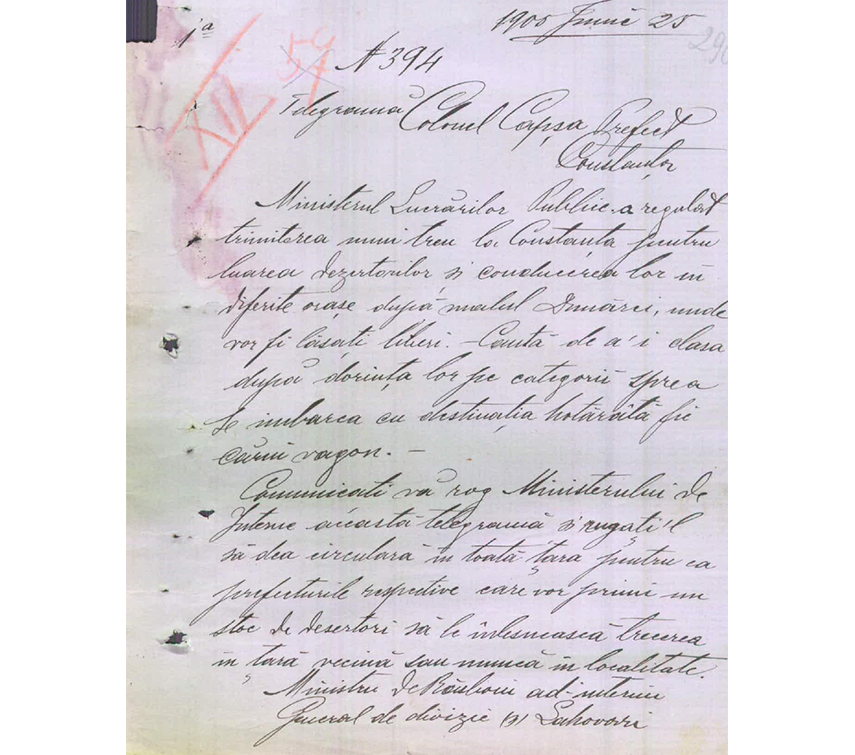 1905 Iunie 25
j^a
290
XII 54
N 394
Telegramă Colonel Capșa Prefect
Constanța
Ministerul Lucrărilor Public. a regulat
trimiterea unui tren la Constanța pentru
luarea dezertorilor și conducerea lor în
diferite orașe după malul Dunărei, unde
vor fi lăsați liberi. – Caută de a'i clasa
după dorința lor pe categorii spre a
se imbarca cu destinația hotărâtă fie
cărui vagon. –
Comunicati vă rog Ministerului de
Interne această telegramă și rugați'l
să dea circulară în toată țara pentru ca
prefecturile respective care vor primi un
stoc de desertori să le înlesnească trecerea
în țară vecină sau muncă în localitate.
Ministru de Răsboiu ad-interim
General de divizie (s) Lahovari